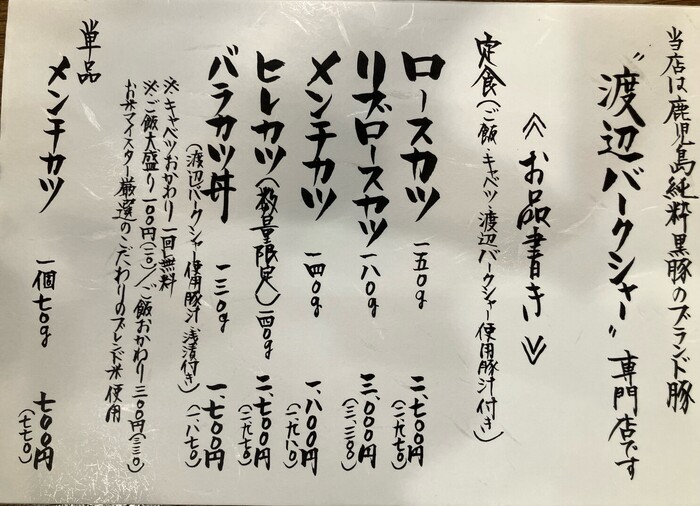 当店は鹿児島純粋黒豚のブランド豚
"渡辺バークシャー"専門店です
≪お品書き≫
定食(ご飯・キャベツ・渡辺バークシャー使用豚汁付き)
ロースカツ 一五〇g 二、七〇〇円(二、九七〇)
リブロースカツ 一八〇g 三、〇〇〇円(三、三〇〇)
メンチカツ 一四〇g 一、八〇〇円(一、九八〇)
ヒレカツ(数量限定)一四〇g 二、七〇〇円(二、九七〇)
バラカツ丼 一三〇g 一、七〇〇円(一、八七〇)
(渡辺バークシャー使用豚汁・浅漬付き)
※キャベツおかわり一回無料
※ご飯大盛り一〇〇円(一一〇)/ご飯おかわり三〇〇円(三三〇)
お米マイスター厳選のこだわりのブレンド米使用
単品
メンチカツ 一個七〇g 七〇〇円(七七〇)